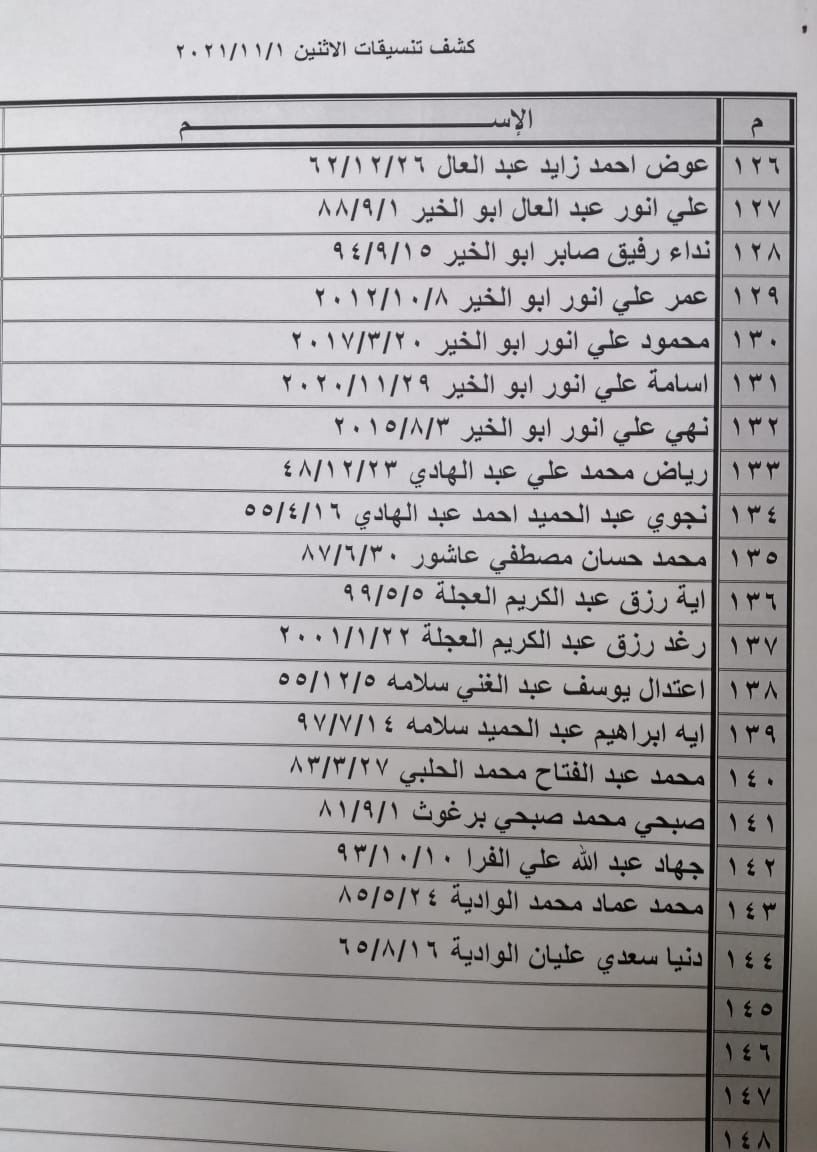 كشف تنسيقات الاثنين ٢٠٢١/١١/١
م الإســـــــــــم
١٢٦ عوض احمد زايد عبد العال ٦٢/١٢/٢٦
١٢٧ علي انور عبد العال ابو الخير ٨٨/٩/١
١٢٨ نداء رفيق صابر ابو الخير ٩٤/٩/١٥
١٢٩ عمر علي انور ابو الخير ٢٠١٢/١٠/٨
١٣٠ محمود علي انور ابو الخير ٢٠١٧/٣/٢٠
١٣١ اسامة علي انور ابو الخير ٢٠٢٠/١١/٢٩
١٣٢ نهي علي انور ابو الخير ٢٠١٥/٨/٣
١٣٣ رياض محمد علي عبد الهادي ٤٨/١٢/٢٣
١٣٤ نجوي عبد الحميد احمد عبد الهادي ٥٥/٤/١٦
١٣٥ محمد حسان مصطفي عاشور ٨٧/٦/٣٠
١٣٦ اية رزق عبد الكريم العجلة ٩٩/٥/٥
١٣٧ رغد رزق عبد الكريم العجلة ٢٠٠١/١/٢٢
١٣٨ اعتدال يوسف عبد الغني سلامه ٥٥/١٢/٥
١٣٩ ايه ابراهيم عبد الحميد سلامه ٩٧/٧/١٤
١٤٠ محمد عبد الفتاح محمد الحلبي ٨٣/٣/٢٧
١٤١ صبحي محمد صبحي برغوث ٨١/٩/١
١٤٢ جهاد عبد الله علي الفرا ٩٣/١٠/١٠
١٤٣ محمد عماد محمد الوادية ٨٥/٥/٢٤
١٤٤ دنيا سعدي عليان الوادية ٦٥/٨/١٦
١٤٥
١٤٦
١٤٧
١٤٨